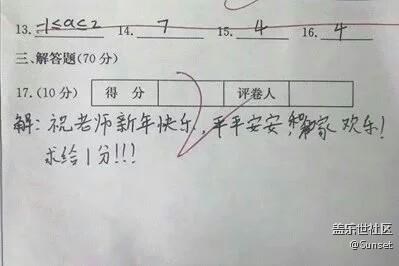 13. -1≤a≤2 14. 7 15. 4 16. 4
三、解答题(70分)
17.(10分) 得分 评卷人
解:祝老师新年快乐,平平安安,家欢乐!
求给1分!!!
盖乐世社区
@Sunset